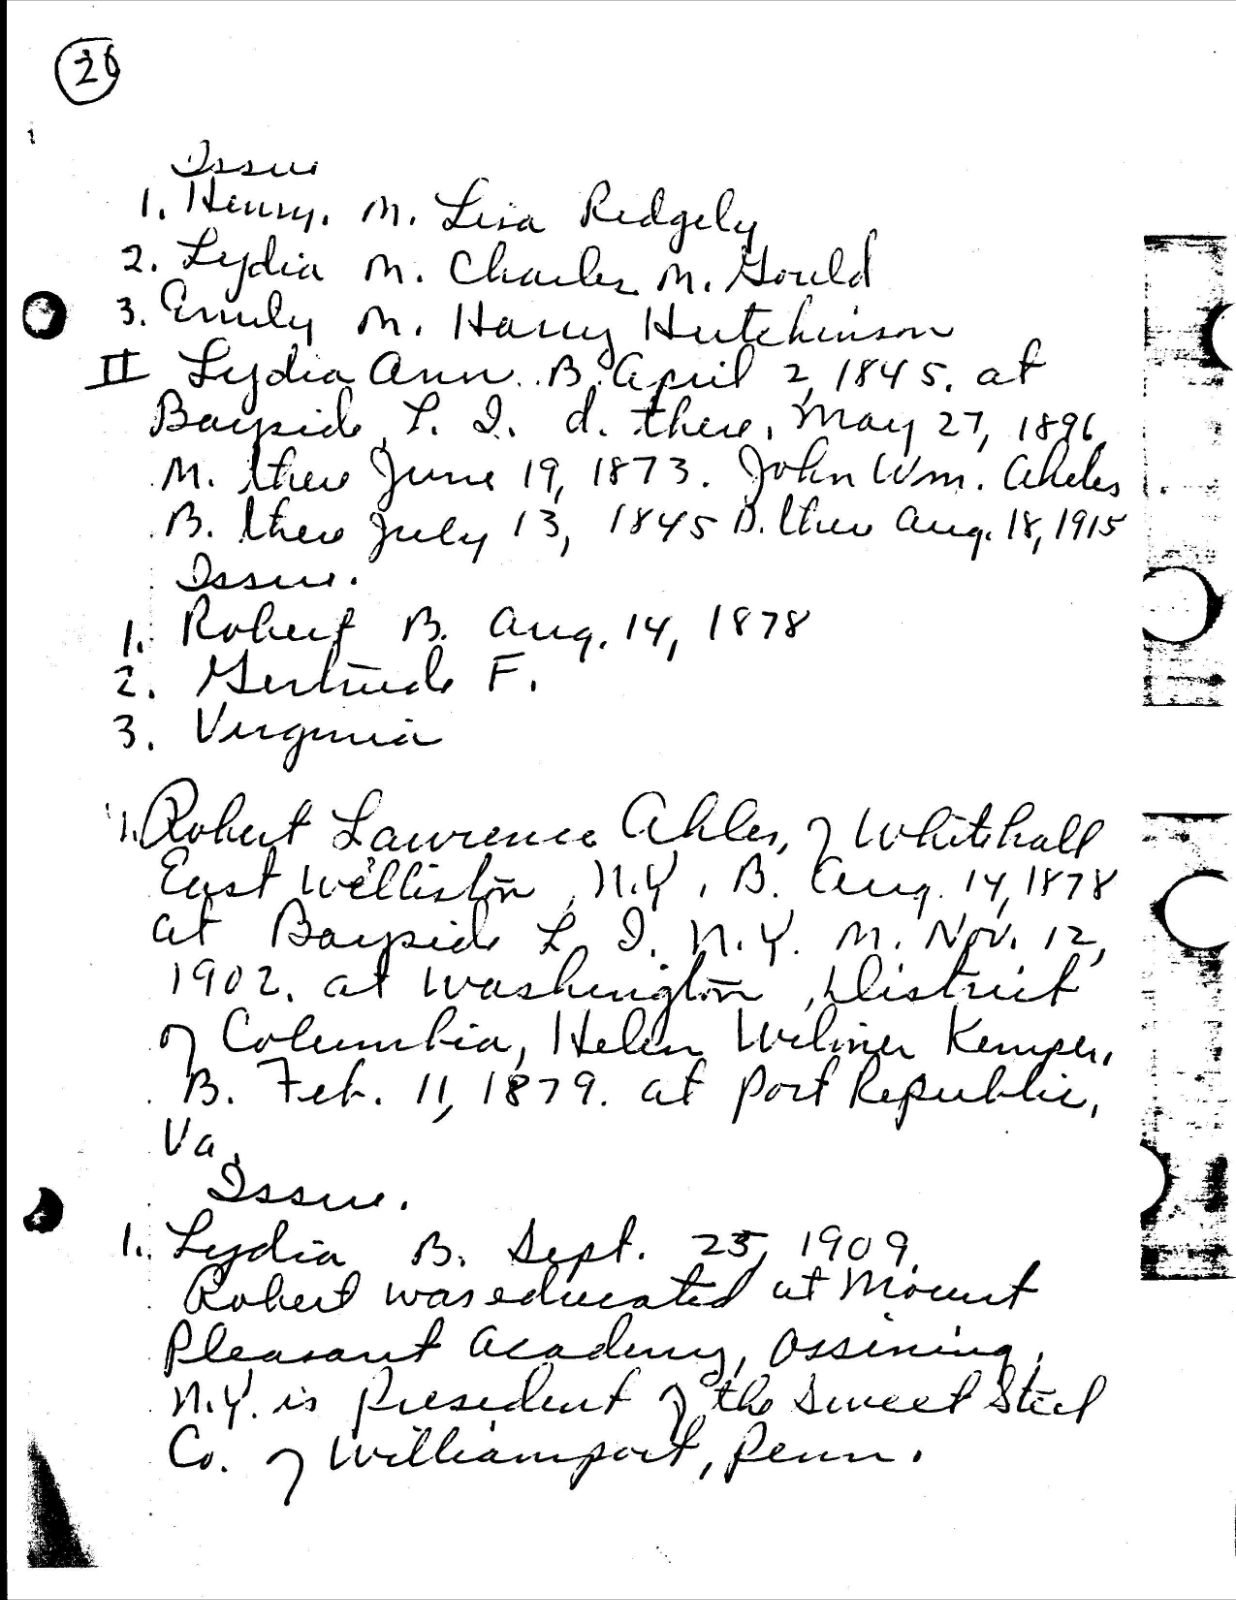 26
Issue
1. Henry. M. Lisa Redgely
2. Lydia M. Charles M. Gould
3. Emily M. Harry Hutchinson
II Lydia Ann. B. April 2, 1845. at
Bayside, L. I. d. there, May 27, 1896
M. there June 19, 1873. John Wm. Ahles
B. there July 13, 1845 D. there Aug. 18, 1915
Issue.
1. Robert B. Aug. 14, 1878
2. Gertrude F.
3. Virginia
1. Robert Lawrence Ahles, of Whitehall
East Williston, N.Y. B. Aug. 14, 1878
at Bayside L. I. N.Y. M. Nov. 12,
1902. at Washington, District
of Columbia, Helen Wilmer Kemper,
B. Feb. 11, 1879. at Port Republic,
Va.
Issue.
1. Lydia B. Sept. 25, 1909
Robert was educated at Mount
Pleasant Academy, Ossining,
N.Y. is President of the Sweet Steel
Co. of Williamsport, Penn.